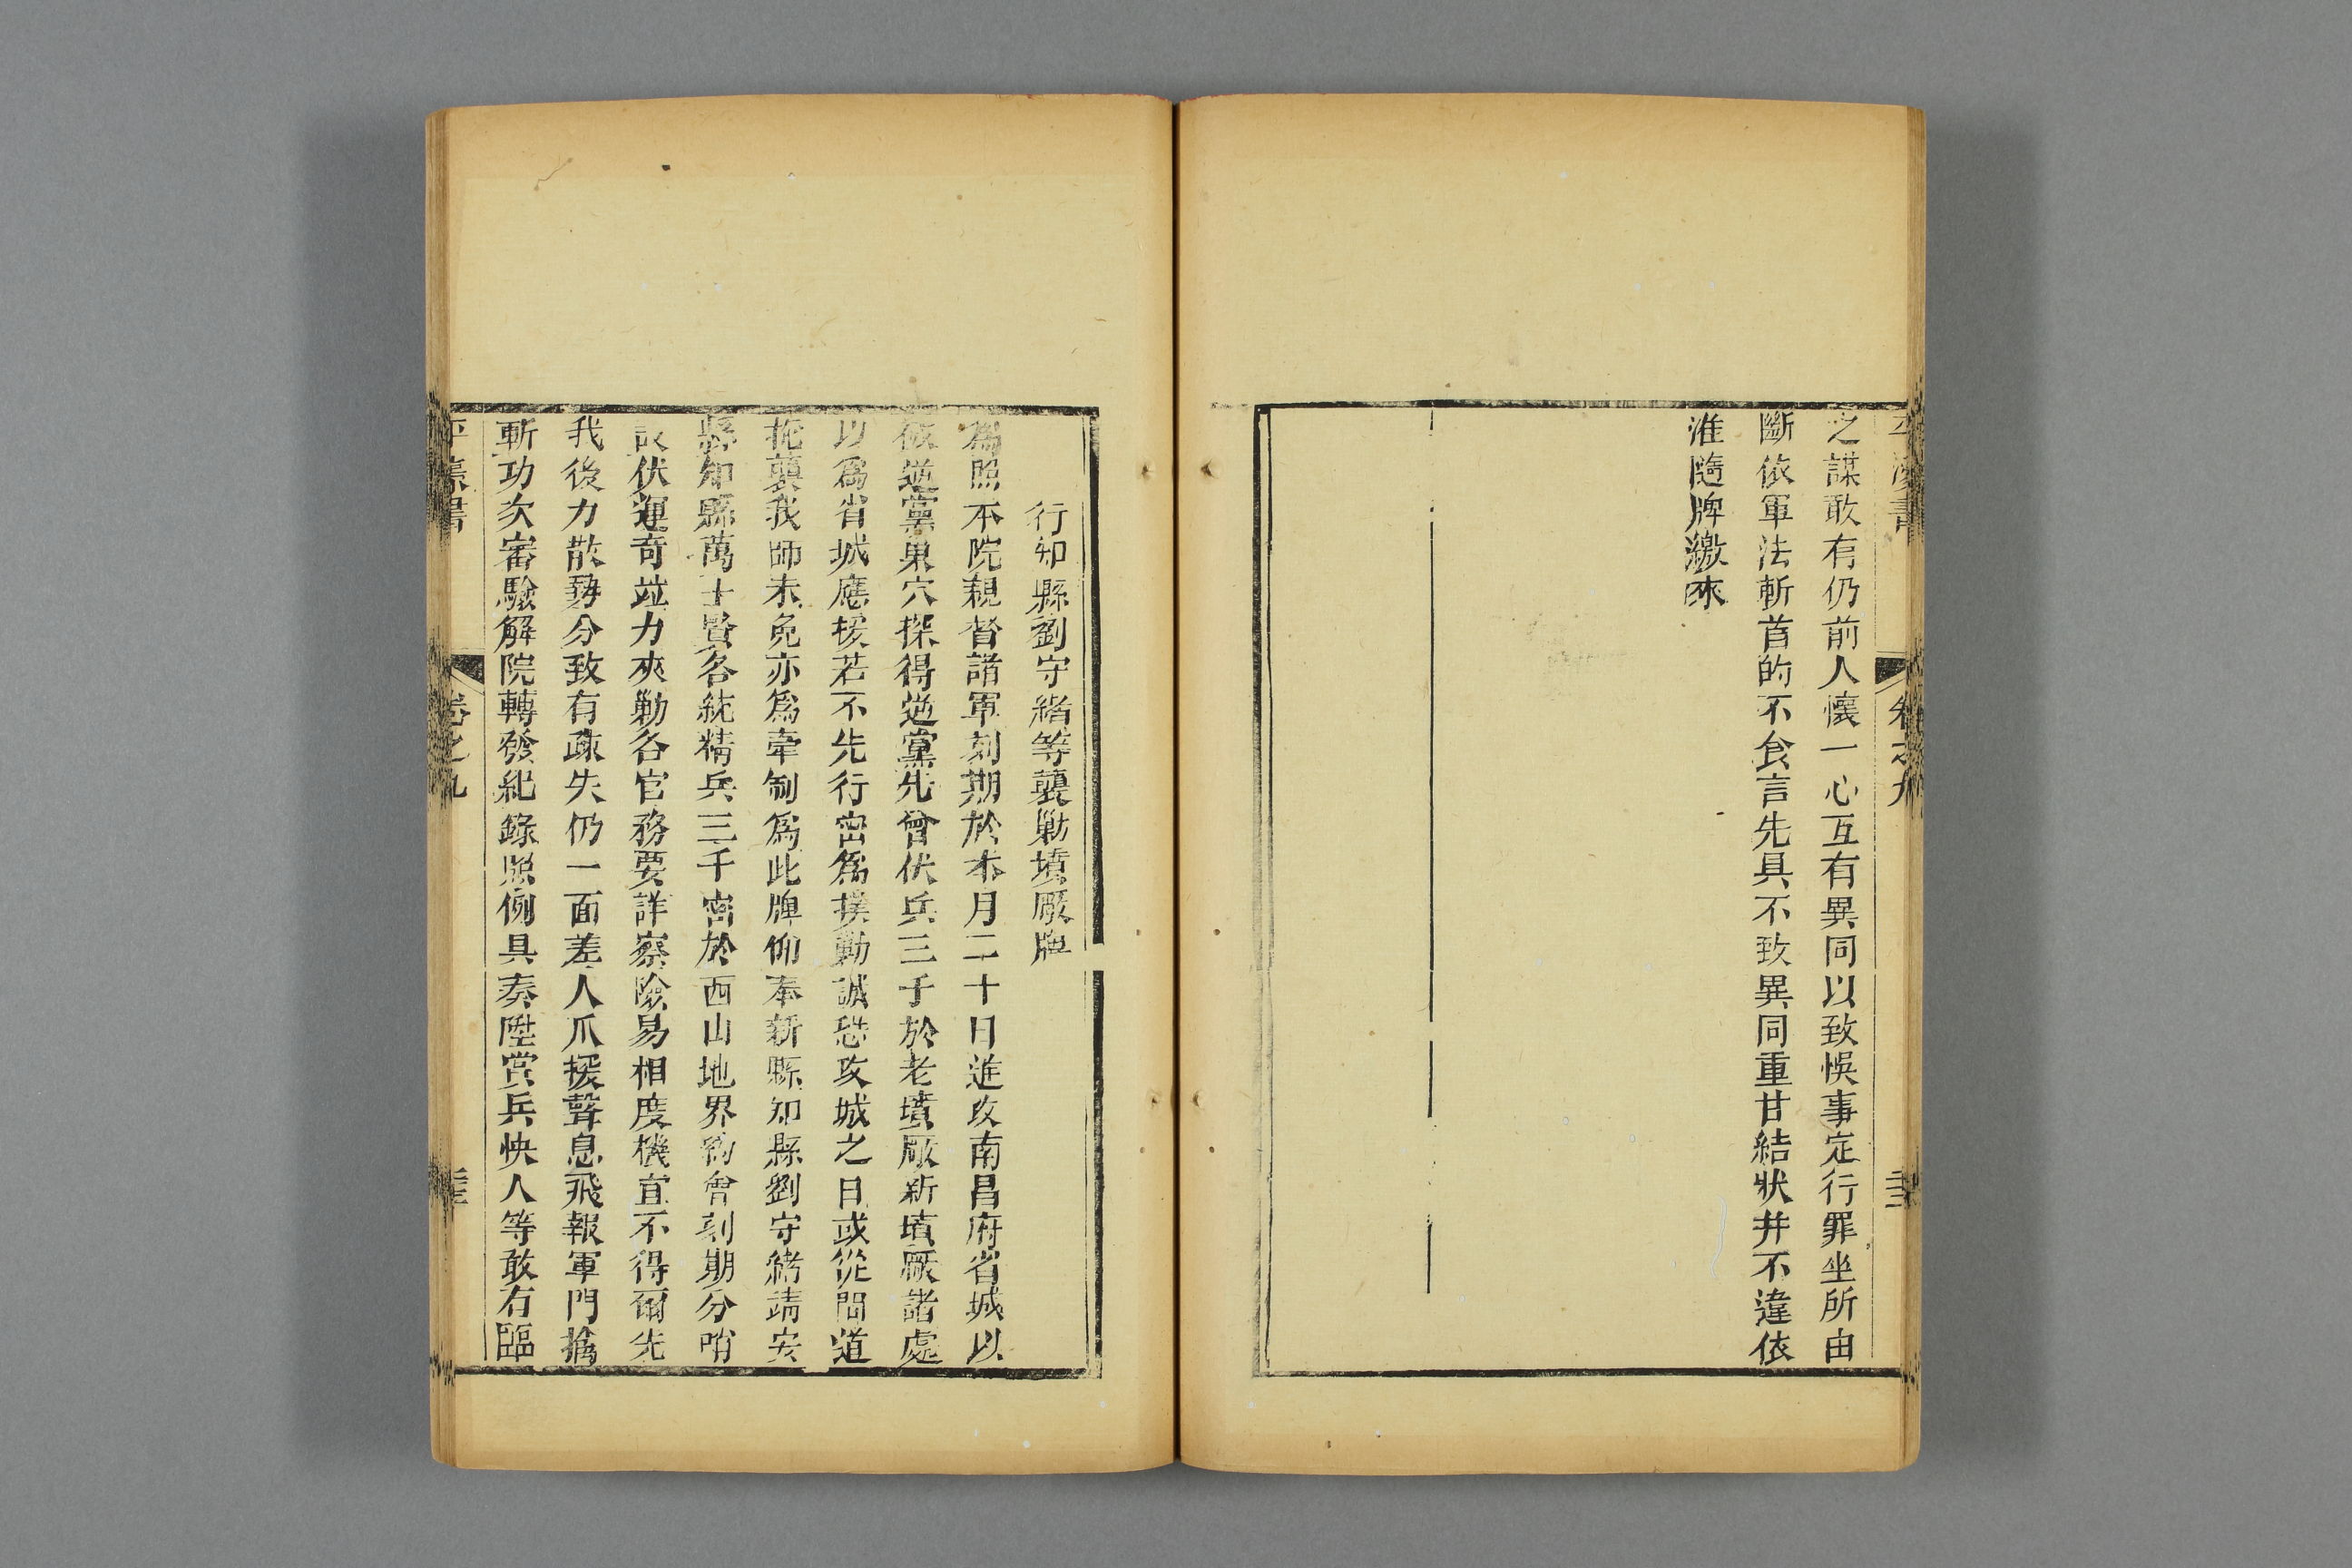 之謀敢有仍前人懷一心互有異同以致悞事定行罪坐所由
斷依軍法斬首的不食言先具不致異同重甘結狀幷不違依
准隨牌繳來
行知縣劉守緒等襲勦墳厰牌
爲照本院親督諸軍刻期於本月二十日進攻南昌府省城以
破逆黨巢穴探得逆黨先曾伏兵三千於老墳厰新墳厰諸處
以爲省城應援若不先行密爲撲勦誠恐攻城之日或從間道
掩襲我師未免亦爲牽制爲此牌仰奉新縣知縣劉守緒靖安
縣知縣萬士賢各統精兵三千密於西山地界約會刻期分哨
設伏運奇竝力夾勦各官務要詳察險易相度機宜不得爾先
我後力散勢分致有疎失仍一面差人爪援聲息飛報軍門擒
斬功次審驗解院轉發紀錄照例具奏陞賞兵快人等敢有臨
平濠書 卷之九